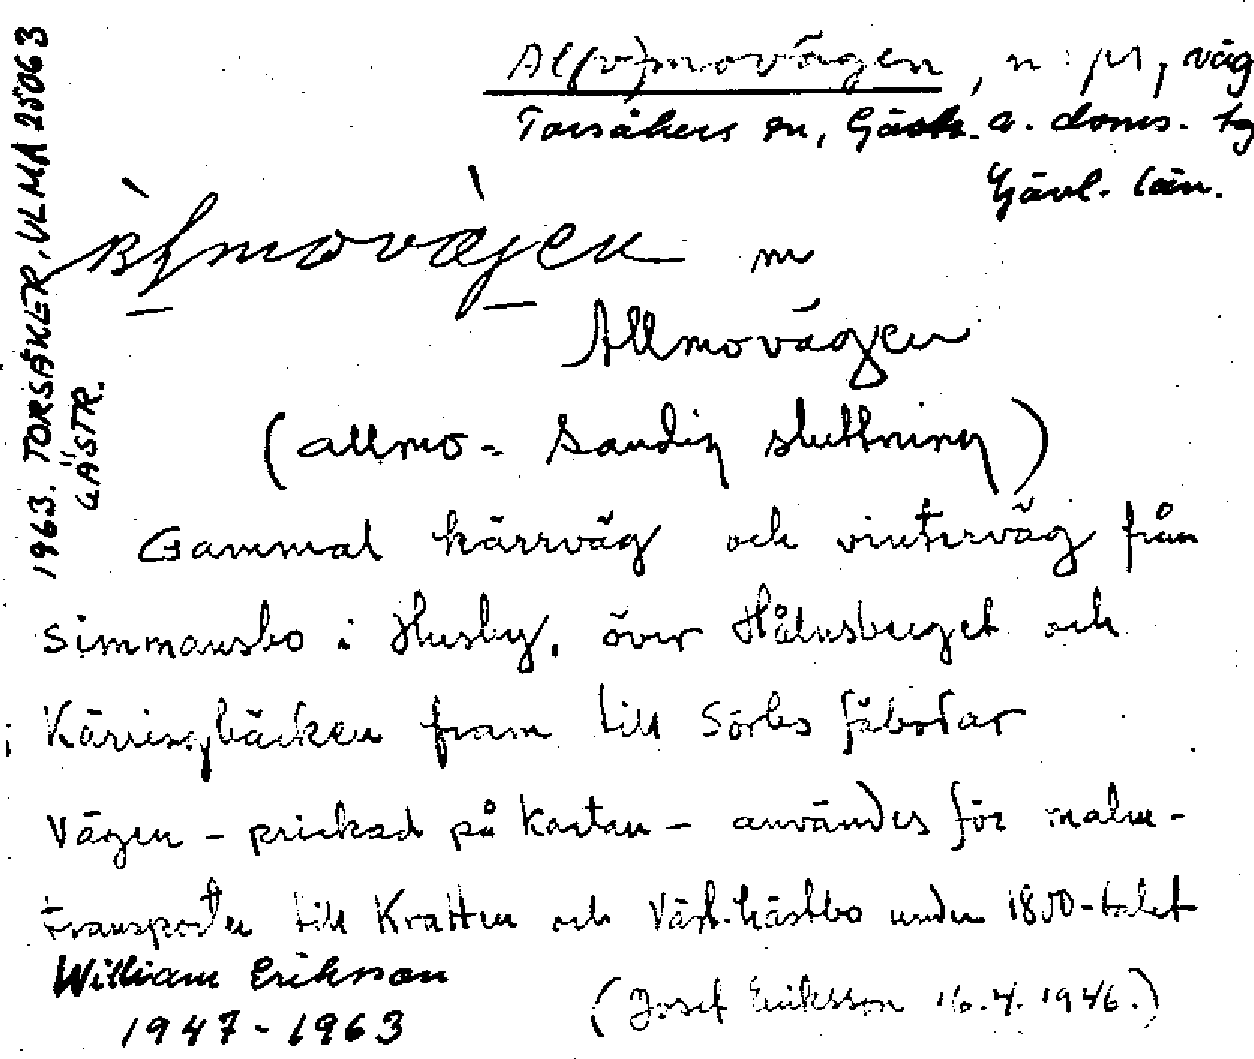 Al(v)movägen, n. pl, väg
Torsåkers sn, Gästr. ö. doms. tg
Gävl. län.
m
Allmovägen
(allmo - Sandig sluttning)
Gammal kärrväg och vinterväg från
Simmansbo i Husby, över Hålnsberget och
Kärringbäcken fram till Sörbs fäbodar
Vägen - prickad på kartan - användes för malm-
transporter till Kratten och Väst.hästbo under 1800-talet
William Eriksson
1947-1963
(Josef Eriksson 16.4.1946.)
1963. TORSÅKER, ULMA 25063
GÄSTR.